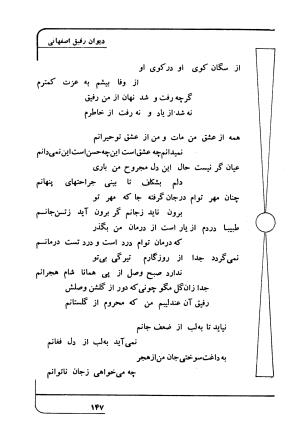 دیوان رفیق اصفهانی
از سگان کوی او در کوی او
از وفا بیشم به عزت کمترم
گرچه رفت و شد نهان از من رفیق
نه شد از یار و نه رفت از خاطرم
همه از عشق من مات و من از عشق تو حیرانم
نمیدانم چه عشق است این چه حسن است این نمی‌دانم
عیان گر نیست حال این دل مجروح من باری
دلم بشکاف تا بینی جراحتهای پنهانم
چنان مهر توام در جان گرفته جا که مهر تو
برون ناید ز جانم گر برون آید ز تن جانم
طبیبا دردم از یار است از درمان من بگذر
که درمان توام درد است و درد تست درمانم
نمی‌گردد جدا از روزگارم تیرگی بی‌تو
ندارد صبح وصل از پی همانا شام هجرانم
جدا زان گل مگو چونی که دور از گلشن وصلش
رفیق آن عندلیبم من که محروم از گلستانم
نیاید تا به لب از ضعف جانم
نمی‌آید به لب از دل فغانم
به داغت سوختی جان من از هجر
چه می‌خواهی ز جان ناتوانم
۱۴۷